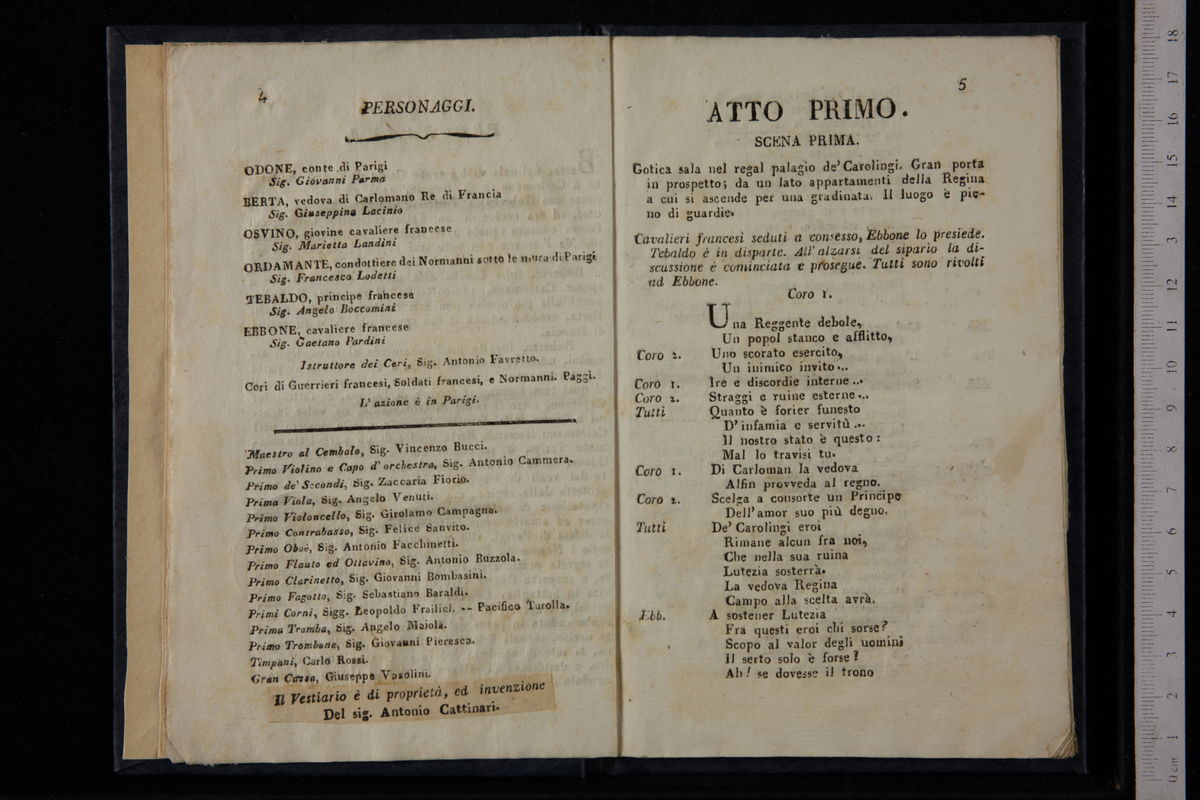 4
PERSONAGGI.
ODONE, conte di Parigi
Sig. Giovanni Parma
BERTA, vedova di Carlomano Re di Francia
Sig. Giuseppina Lacinio
OSVINO, giovine cavaliere francese
Sig. Marietta Landini
ORDAMANTE, condottiere dei Normanni sotto le mura di Parigi
Sig. Francesco Lodetti
TEBALDO, principe francese
Sig. Angelo Boccomini
EBBONE, cavaliere francese
Sig. Gaetano Pardini
Istruttore dei Cori, Sig. Antonio Favretto.
Cori di Guerrieri francesi, Soldati francesi, e Normanni. Paggi.
L' azione è in Parigi.
Maestro al Cembalo, Sig. Vincenzo Bucci.
Primo Violino e Capo d' orchestra, Sig. Antonio Cammera.
Primo de' Secondi, Sig. Zaccaria Fiorio.
Prima Viola, Sig. Angelo Venuti.
Primo Violoncello, Sig. Girolamo Campagna.
Primo Contrabasso, Sig. Felice Sanvito.
Primo Oboè, Sig. Antonio Facchinetti.
Primo Flauto ed Ottavino, Sig. Antonio Buzzola.
Primo Clarinetto, Sig. Giovanni Bombasini.
Primo Fagotto, Sig. Sebastiano Baraldi.
Primi Corni, Sigg. Leopoldo Frailich. -- Pacifico Turolla.
Prima Tromba, Sig. Angelo Maiola.
Primo Trombone, Sig. Giovanni Pieresca.
Timpani, Carlo Rossi.
Gran Cassa, Giuseppe Vasolini.
Il Vestiario è di proprietà, ed invenzione
Del sig. Antonio Cattinari.
5
ATTO PRIMO.
SCENA PRIMA.
Gotica sala nel regal palagio de' Carolingi. Gran porta
in prospetto; da un lato appartamenti della Regina
a cui si ascende per una gradinata. Il luogo è pie-
no di guardie.
Cavalieri francesi seduti a consesso, Ebbone lo presiede.
Tebaldo è in disparte. All' alzarsi del sipario la di-
scussione è cominciata e prosegue. Tutti sono rivolti
ad Ebbone.
Coro 1.
Una Reggente debole,
Un popol stanco e afflitto,
Coro 2. Uno scorato esercito,
Un inimico invito...
Coro 1. Ire e discordie interne...
Coro 2. Straggi e ruine esterne...
Tutti Quanto è forier funesto
D' infamia e servitù...
Il nostro stato è questo:
Mal lo travisi tu.
Coro 1. Di Carloman la vedova
Alfin provveda al regno.
Coro 2. Scelga a consorte un Principe
Dell' amor suo più degno.
Tutti De' Carolingi eroi
Rimane alcun fra noi,
Che nella sua ruina
Lutezia sosterrà.
La vedova Regina
Campo alla scelta avrà.
Ebb. A sostener Lutezia
Fra questi eroi chi sorse?
Scopo al valor degli uomini
Il serto solo è forse?
Ah! se dovesse il trono